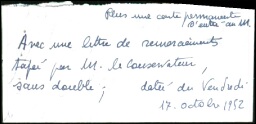 Plus une carte permanente
d'entrée au M.
Avec une lettre de remerciements
tapée par M. le Conservateur,
sans double ; datée du Vendredi
17. octobre 1952